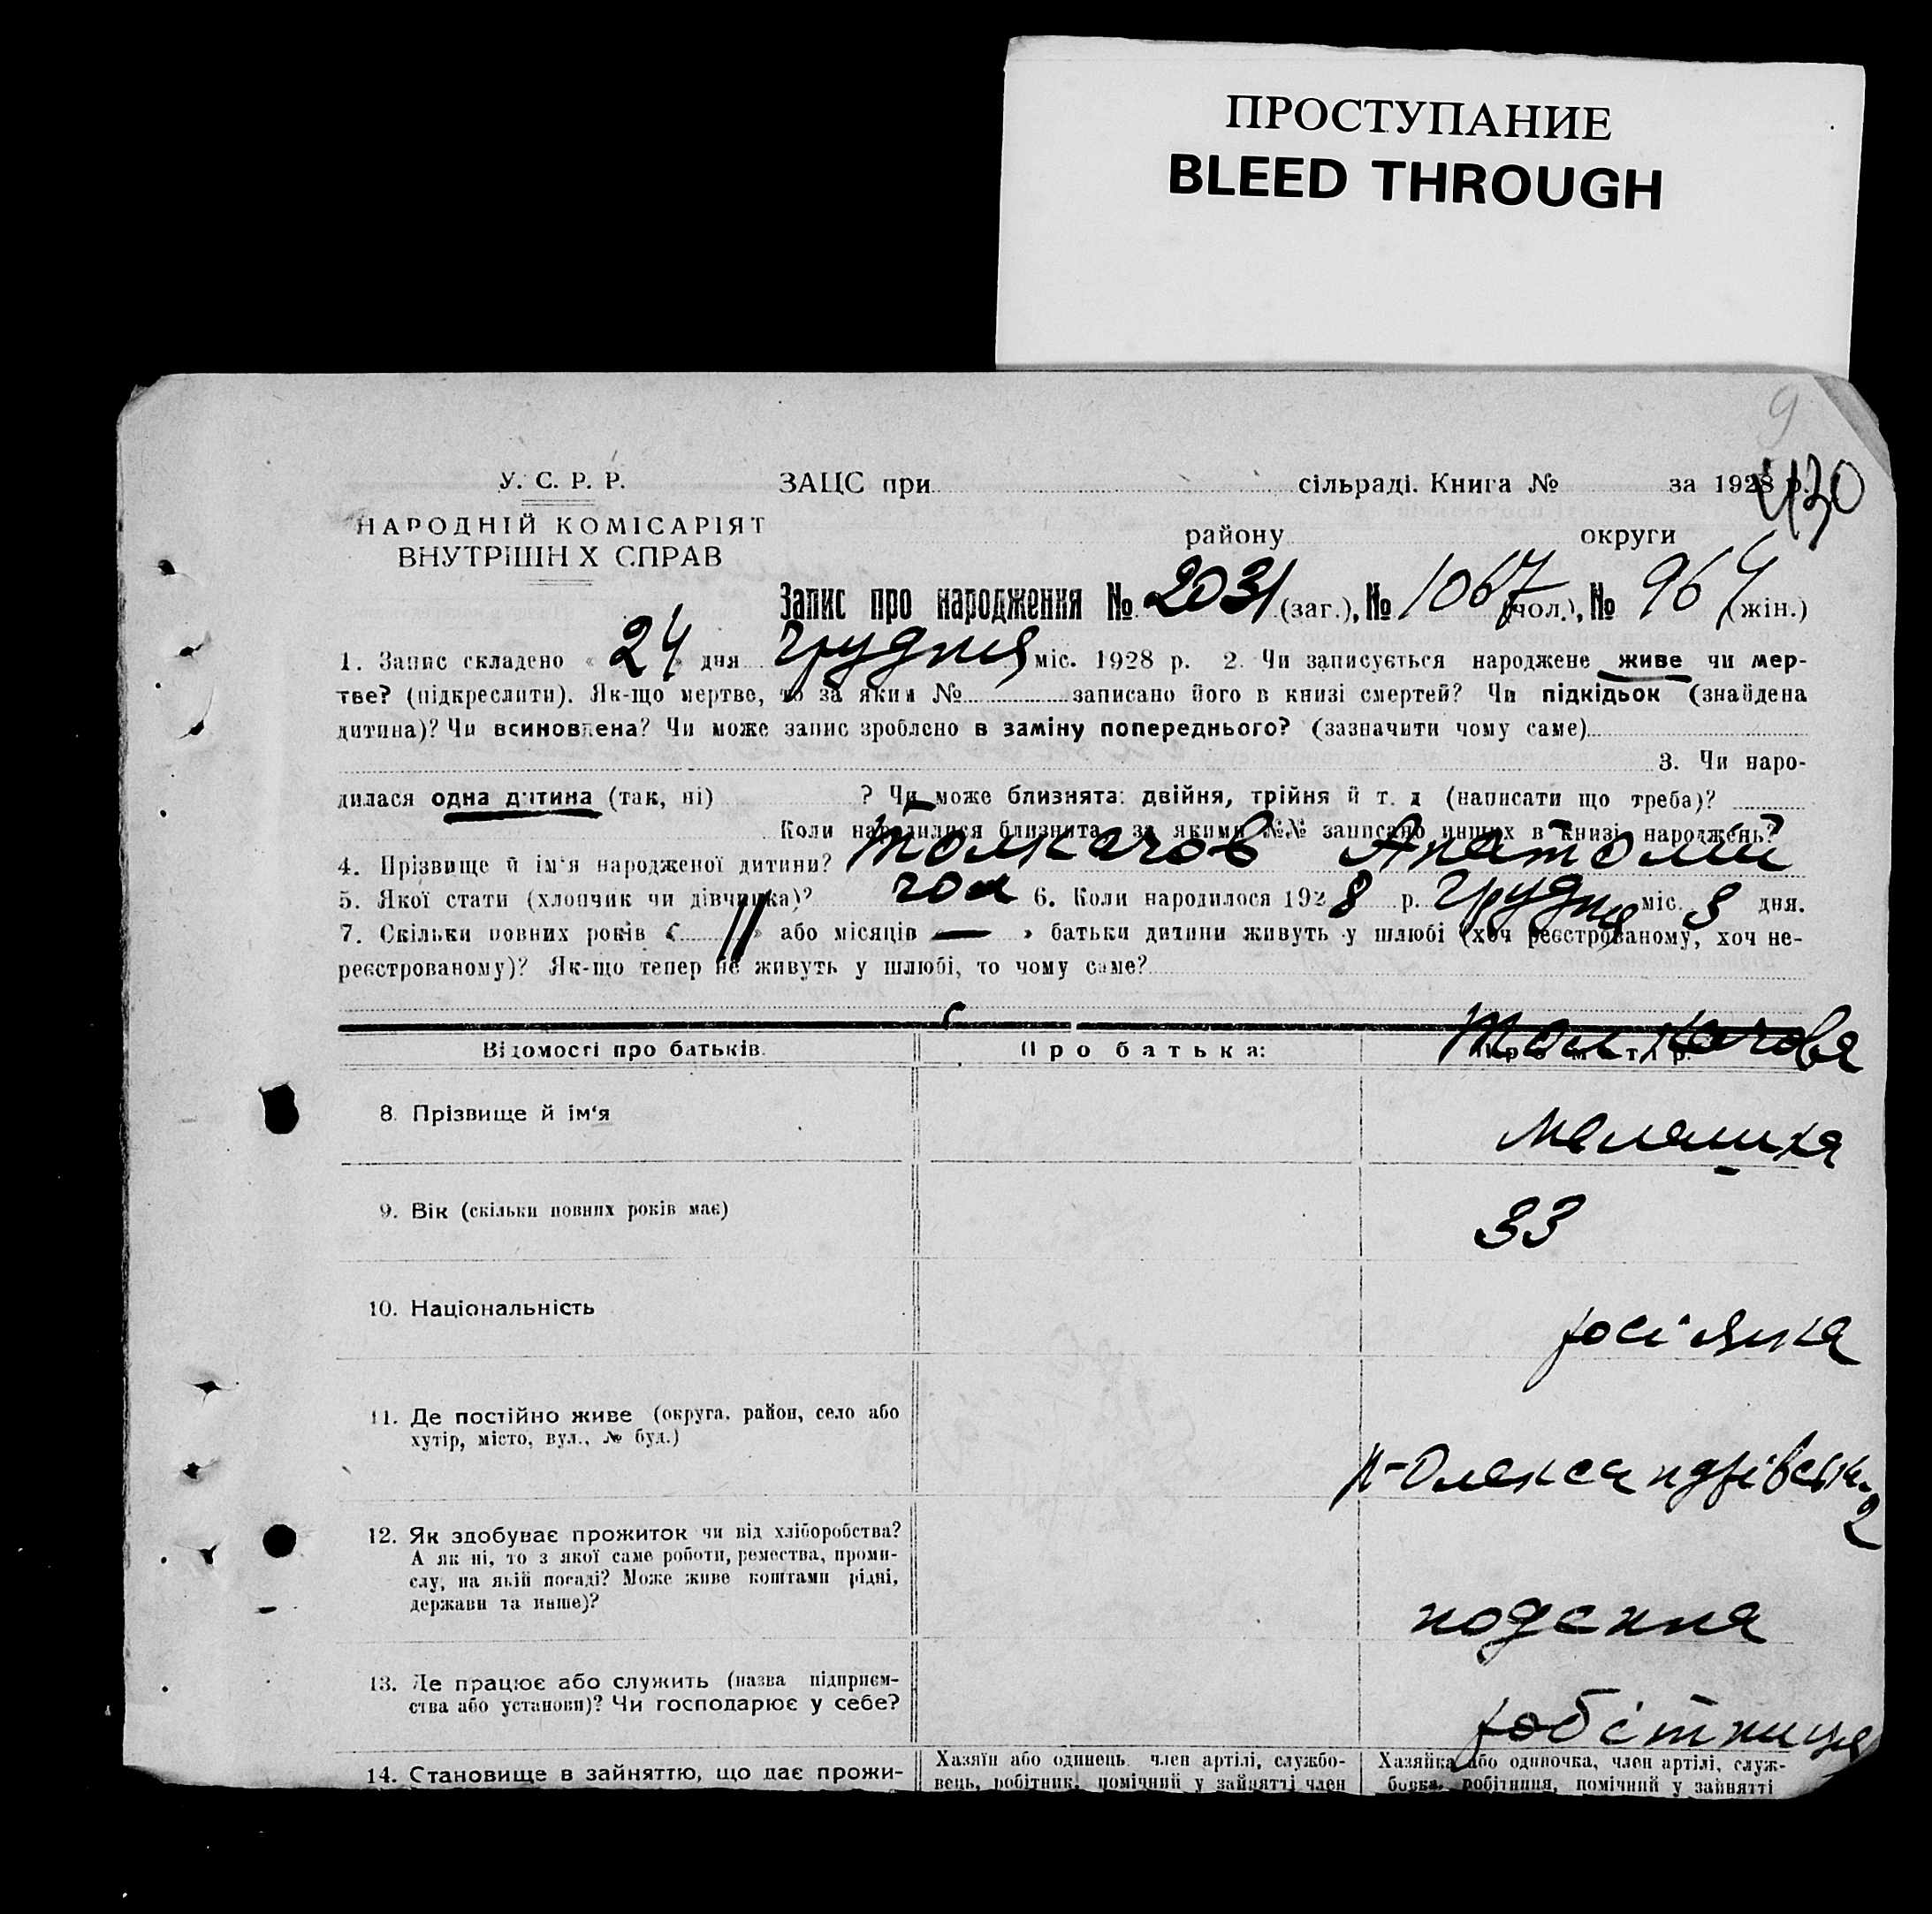 ПРОСТУПАНИЕ
BLEED THROUGH
9
430
У. С. Р. Р.
НАРОДНІЙ КОМІСАРІЯТ
ВНУТРІШН Х СПРАВ
ЗАЦС при сільраді. Книга № за 1928 р.
району округи
Запис про народження № 2031 (заг.), № 1067 (чол.), № 964 (жін.)
1. Запис складено « 24 » дня грудня міс. 1928 р. 2. Чи записується народжене живе чи мер-
тве? (підкреслити). Як-що мертве, то за яким № записано його в книзі смертей? Чи підкідьок (знайдена
дитина)? Чи всиновлена? Чи може запис зроблено в заміну попереднього? (зазначити чому саме)
3. Чи наро-
дилася одна дитина (так, ні) ? Чи може близнята: двійня, трійня й т. д (написати що треба)?
Коли народилися близнята, за якими №№ записано инших в книзі народжень?
4. Прізвище й ім'я народженої дитини? Толкачов Анатолій
5. Якої стати (хлопчик чи дівчинка)? чол 6. Коли народилося 1928 р. грудня міс. 3 дня.
7. Скільки повних років « 11 » або місяців « — » батьки дитини живуть у шлюбі (хоч реєстрованому, хоч не-
реєстрованому)? Як-що тепер не живуть у шлюбі, то чому саме?
Відомості про батьків. Про батька: Про матір:
Толкачова
8. Прізвище й ім'я
Малашка
9. Вік (скільки повних років має)
33
10. Національність
росіянка
11. Де постійно живе (округа, район, село або
хутір, місто, вул., № буд.)
Н-Олександрівськ
2
12. Як здобуває прожиток чи від хліборобства?
А як ні, то з якої саме роботи, ремества, проми-
слу, на якій посаді? Може живе коштами рідні,
держави та инше)?
поденна
13. Де працює або служить (назва підприєм-
ства або установи)? Чи господарює у себе?
робітниця
14. Становище в зайняттю, що дає прожи-
Хазяїн або одинець, член артілі, службо-
вець, робітник, помічний у зайнятті член
Хазяйка або одиночка, член артілі, служ-
бовка, робітниця, помічний у зайнятті